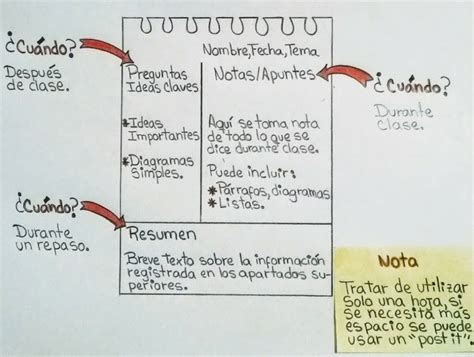 Nombre, Fecha, Tema
¿Cuándo?
Después
de clase.
Preguntas
Ideas claves
*Ideas
Importantes
*Diagramas
simples.
Notas/Apuntes
Aquí se toma nota
de todo lo que se
dice durante clase.
Puede incluir:
*Párrafos, diagramas
*Listas.
¿Cuándo?
Durante
clase.
¿Cuándo?
Durante
un repaso.
Resumen
Breve texto sobre la información
registrada en los apartados su-
periores.
Nota
Tratar de utilizar
solo una hoja, si
se necesita más
espacio se puede
usar un "post it".